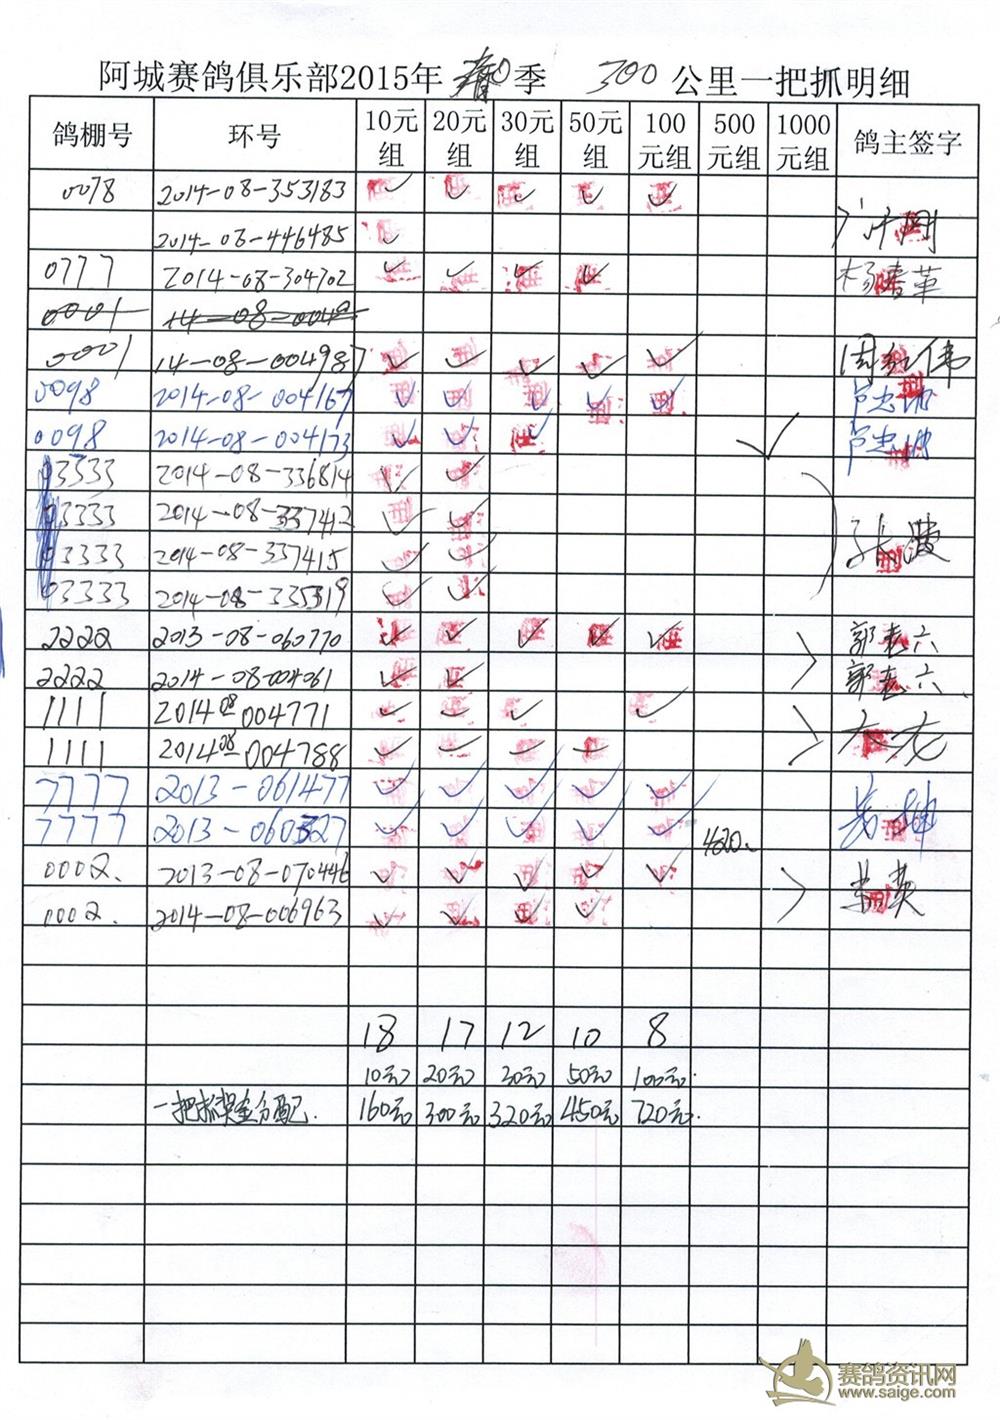 阿城赛鸽俱乐部2015年春季 300公里一把抓明细
鸽棚号 环号 10元组 20元组 30元组 50元组 100元组 500元组 1000元组 鸽主签字
0078 2014-08-353183 ✓ ✓ ✓ ✓ ✓
2014-08-446485 ✓
0777 2014-08-304702 ✓ ✓ ✓ ✓
0001 14-08-0049
0001 14-08-004987 ✓ ✓ ✓ ✓ ✓
0098 2014-08-004167 ✓ ✓ ✓ ✓ ✓
0098 2014-08-004173 ✓ ✓ ✓ ✓
03333 2014-08-336814 ✓ ✓
03333 2014-08-337412 ✓ ✓
03333 2014-08-337415 ✓ ✓
03333 2014-08-335319 ✓ ✓
2222 2013-08-060770 ✓ ✓ ✓ ✓ ✓ 郭老六
2222 2014-08-004061 ✓ ✓ 郭老六
1111 2014 08 004771 ✓ ✓ ✓ ✓
1111 2014 08 004788 ✓ ✓ ✓ ✓
7777 2013-061477 ✓ ✓ ✓ ✓ ✓
7777 2013-060327 ✓ ✓ ✓ ✓ ✓
0002. 2013-08-070446 ✓ ✓ ✓ ✓ ✓
0002. 2014-08-006963 ✓ ✓ ✓ ✓
18 17 12 10 8
10元 20元 30元 50元 100元
一把抓奖金分配. 160元 300元 320元 450元 720元.
赛鸽资讯网
www.saige.com